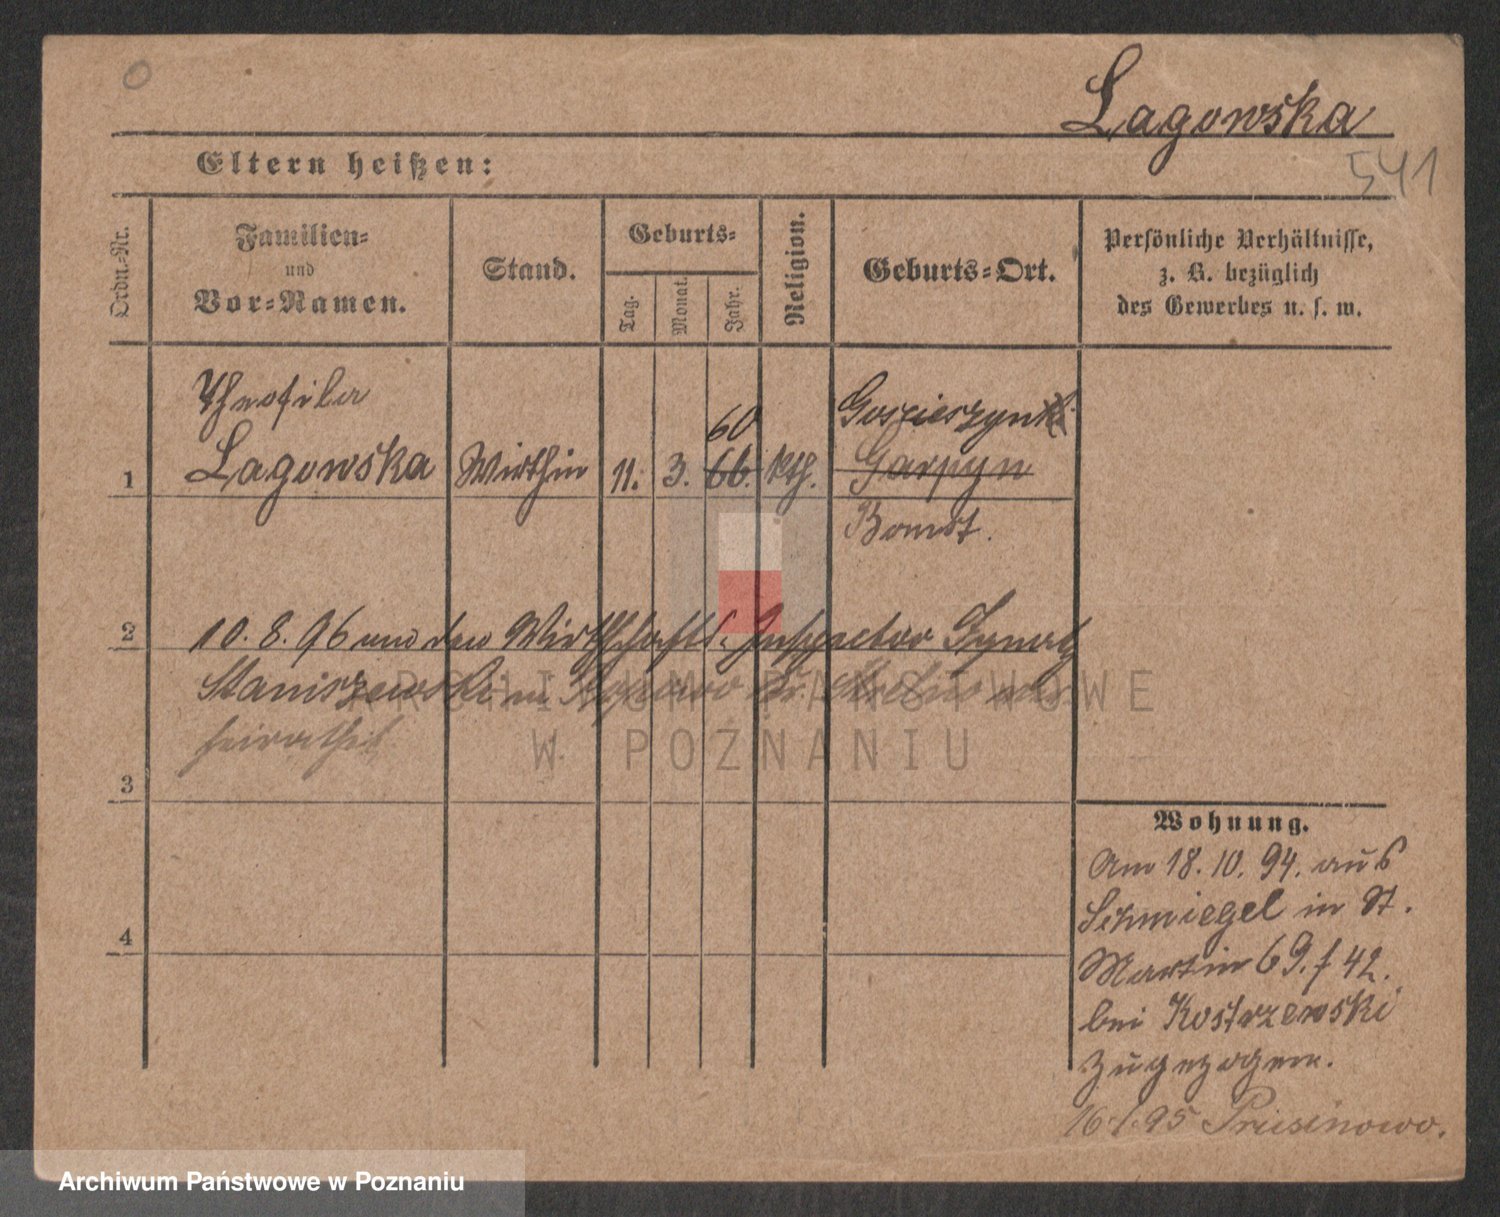 0
Lagowska
541
Eltern heißen:
Ordn.-Nr.
Familien-
und
Vor-Namen.
Stand.
Geburts-
Tag.
Monat.
Jahr.
Religion.
Geburts-Ort.
Persönliche Verhältnisse,
z. B. bezüglich
des Gewerbes u. s. w.
Theofila
Lagowska
1
Wirthin
11.
3.
60
66.
kth.
Goscieszyn
Garpyn
Bomst.
2
10. 8. 96 den Wirthschafts-Inspector Ignatz
Staniszewski in
heirathet
3
4
Wohnung.
Am 18. 10. 94. aus
Schmiegel in St.
Martin 69. f 42.
bei Kostrzewski
zugezogen.
16.1.95 Prusinowo.
ARCHIWUM PAŃSTWOWE
W POZNANIU
Archiwum Państwowe w Poznaniu